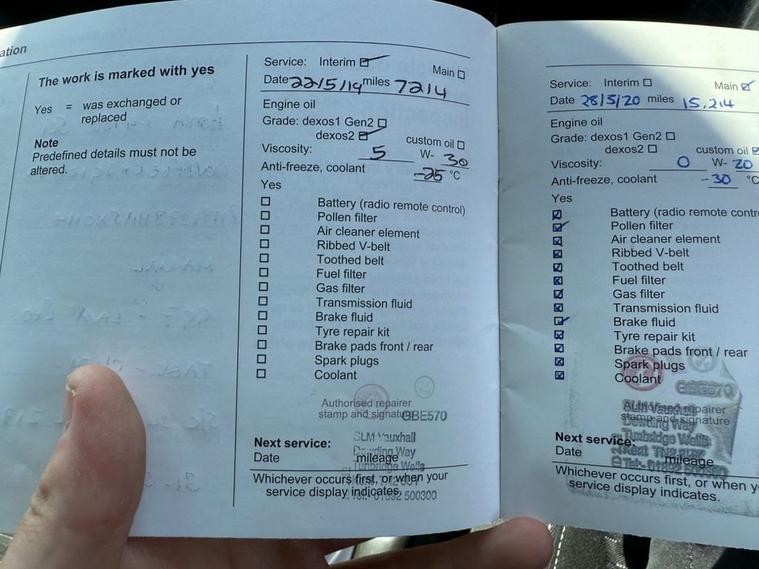 ation
The work is marked with yes
Yes = was exchanged or
replaced
Note
Predefined details must not be
altered.
Service: Interim Main
Date 22/5/19 miles 7214
Engine oil
Grade: dexos1 Gen2
dexos2 custom oil
Viscosity: 5 W- 30
Anti-freeze, coolant -25 °C
Yes
Battery (radio remote control)
Pollen filter
Air cleaner element
Ribbed V-belt
Toothed belt
Fuel filter
Gas filter
Transmission fluid
Brake fluid
Tyre repair kit
Brake pads front / rear
Spark plugs
Coolant
Authorised repairer
stamp and signature GBE570
SLM Vauxhall
Dowding Way
Tunbridge Wells
Tel: 01892 500300
Next service:
Date mileage
Whichever occurs first, or when your
service display indicates.
Service: Interim Main
Date 28/5/20 miles 15,214
Engine oil
Grade: dexos1 Gen2
dexos2 custom oil
Viscosity: 0 W- 20
Anti-freeze, coolant -30 °C
Yes
Battery (radio remote contr
Pollen filter
Air cleaner element
Ribbed V-belt
Toothed belt
Fuel filter
Gas filter
Transmission fluid
Brake fluid
Tyre repair kit
Brake pads front / rear
Spark plugs
Coolant
GBE570
repairer
stamp and signature
Dowding Way
Tunbridge Wells
Next service:
Date mileage
Whichever occurs first, or when y
service display indicates.